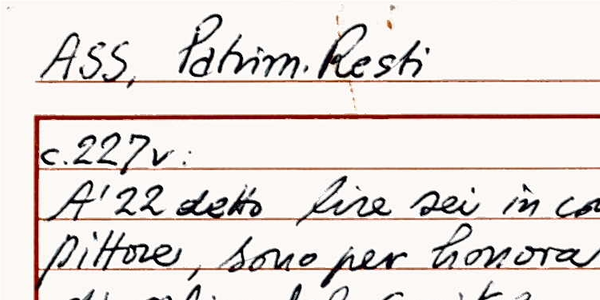 ASS, Patrim. Resti
c.227v:
A'22 detto lire sei in
pittore, sono per honora